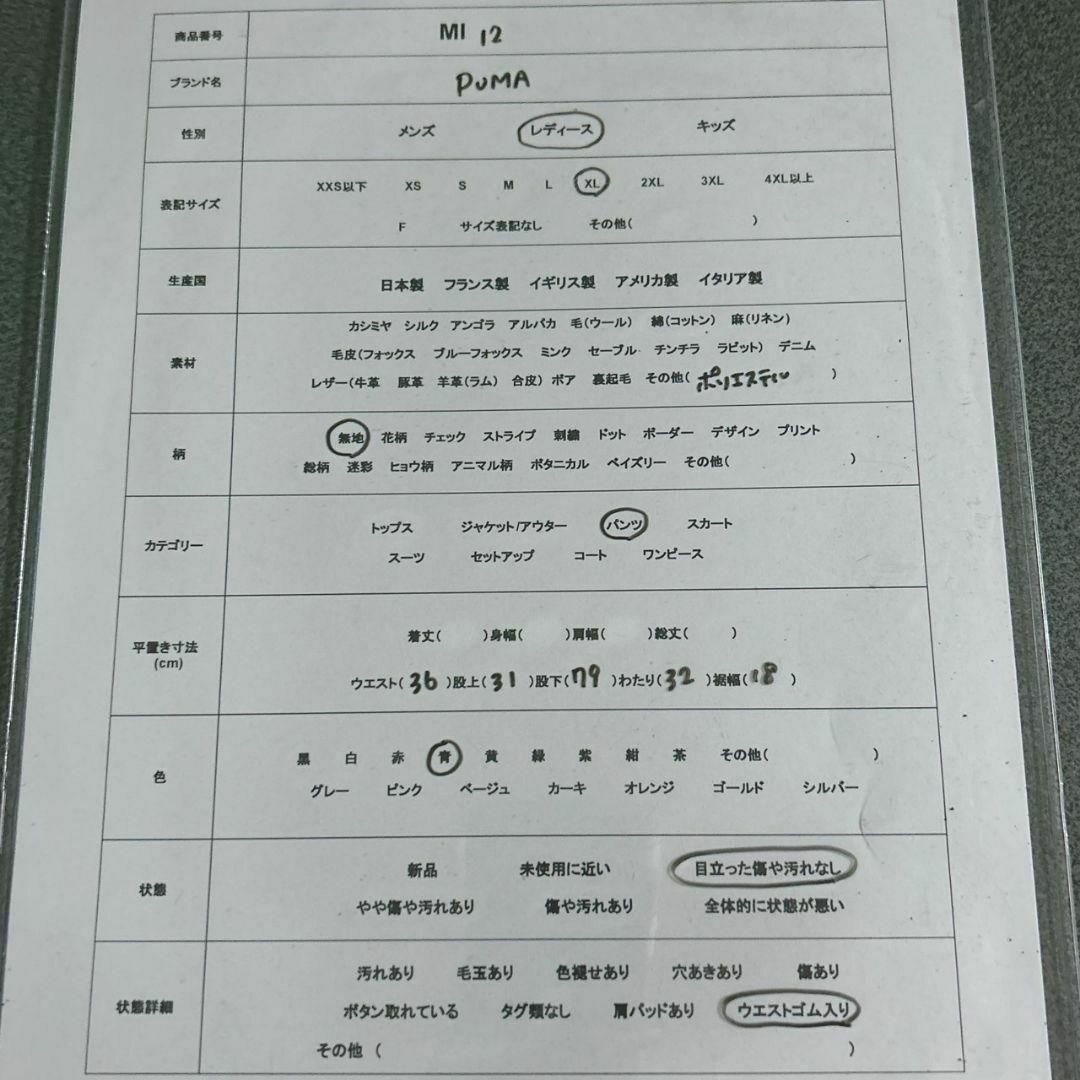 商品番号 MI 12
ブランド名 PUMA
性別 メンズ レディース キッズ
表記サイズ XXS以下 XS S M L XL 2XL 3XL 4XL以上
F サイズ表記なし その他( )
生産国 日本製 フランス製 イギリス製 アメリカ製 イタリア製
素材 カシミヤ シルク アンゴラ アルパカ 毛(ウール) 綿(コットン) 麻(リネン)
毛皮(フォックス ブルーフォックス ミンク セーブル チンチラ ラビット) デニム
レザー(牛革 豚革 羊革(ラム) 合皮) ボア 裏起毛 その他( ポリエステル )
柄 無地 花柄 チェック ストライプ 刺繍 ドット ボーダー デザイン プリント
総柄 迷彩 ヒョウ柄 アニマル柄 ボタニカル ペイズリー その他( )
カテゴリー トップス ジャケット/アウター パンツ スカート
スーツ セットアップ コート ワンピース
平置き寸法 着丈( )身幅( )肩幅( )総丈( )
(cm) ウエスト( 36 )股上( 31 )股下( 79 )わたり( 32 )裾幅( 18 )
色 黒 白 赤 青 黄 緑 紫 紺 茶 その他( )
グレー ピンク ベージュ カーキ オレンジ ゴールド シルバー
状態 新品 未使用に近い 目立った傷や汚れなし
やや傷や汚れあり 傷や汚れあり 全体的に状態が悪い
状態詳細 汚れあり 毛玉あり 色褪せあり 穴あきあり 傷あり
ボタン取れている タグ類なし 肩パッドあり ウエストゴム入り
その他 ( )